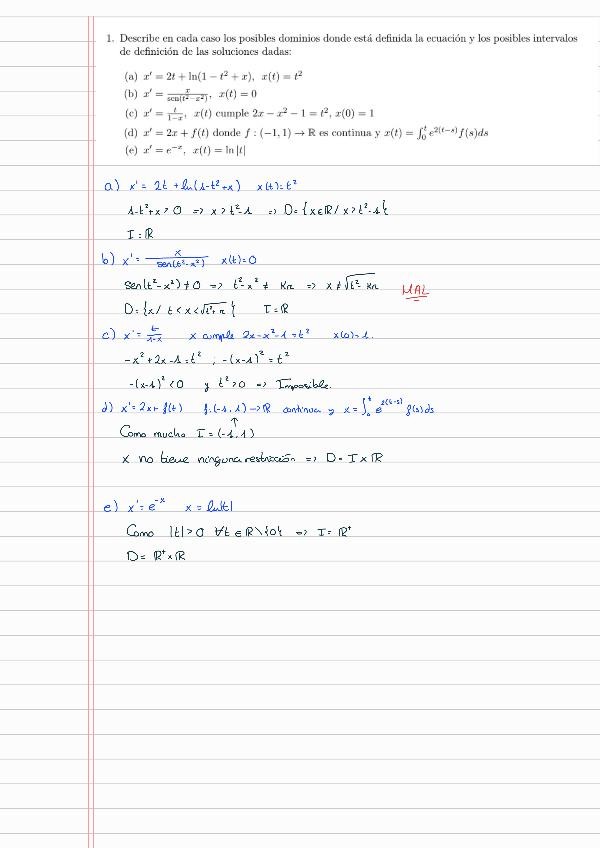 1. Describe en cada caso los posibles dominios donde está definida la ecuación y los posibles intervalos
de definición de las soluciones dadas:
(a) x′ = 2t + ln(1 − t² + x), x(t) = t²
(b) x′ = x/sen(t²−x²), x(t) = 0
(c) x′ = t/(1−x), x(t) cumple 2x − x² − 1 = t², x(0) = 1
(d) x′ = 2x + f(t) donde f : (−1, 1) → ℝ es continua y x(t) = ∫₀ᵗ e^{2(t−s)} f(s)ds
(e) x′ = e^{−x}, x(t) = ln |t|
a) x' = 2t + ln(1-t²+x) x(t)=t²
1-t²+x > 0 => x > t²-1 => D = {x∈ℝ / x > t²-1}
I = ℝ
b) x' = x/sen(t²-x²) x(t)=0
sen(t²-x²) ≠ 0 => t²-x² ≠ kπ => x ≠ √(t²-kπ) MAL
D = {x / t < x < √(t²+π)} I = ℝ
c) x' = t/(1-x) x cumple 2x-x²-1 = t² x(0)=1.
-x²+2x-1 = t² ; -(x-1)² = t²
-(x-1)² < 0 y t² > 0 => Imposible.
d) x' = 2x + f(t) f:(-1,1) → ℝ continua y x = ∫₀ᵗ e^{2(t-s)} f(s)ds
↑
Como mucho I = (-1,1)
x no tiene ninguna restricción => D = I × ℝ
e) x' = e^{-x} x = ln|t|
Como |t| > 0 ∀t ∈ ℝ\{0} => I = ℝ⁺
D = ℝ⁺ × ℝ